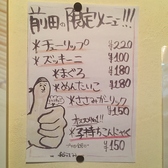 前田の限定メニュー!!!
*チューリップ ¥220
*ズッキーニ ¥100
*まぐろ ¥180
*めんたいこ ¥180
*ささみガーリック ¥150
*子持ちこんにゃく ¥150